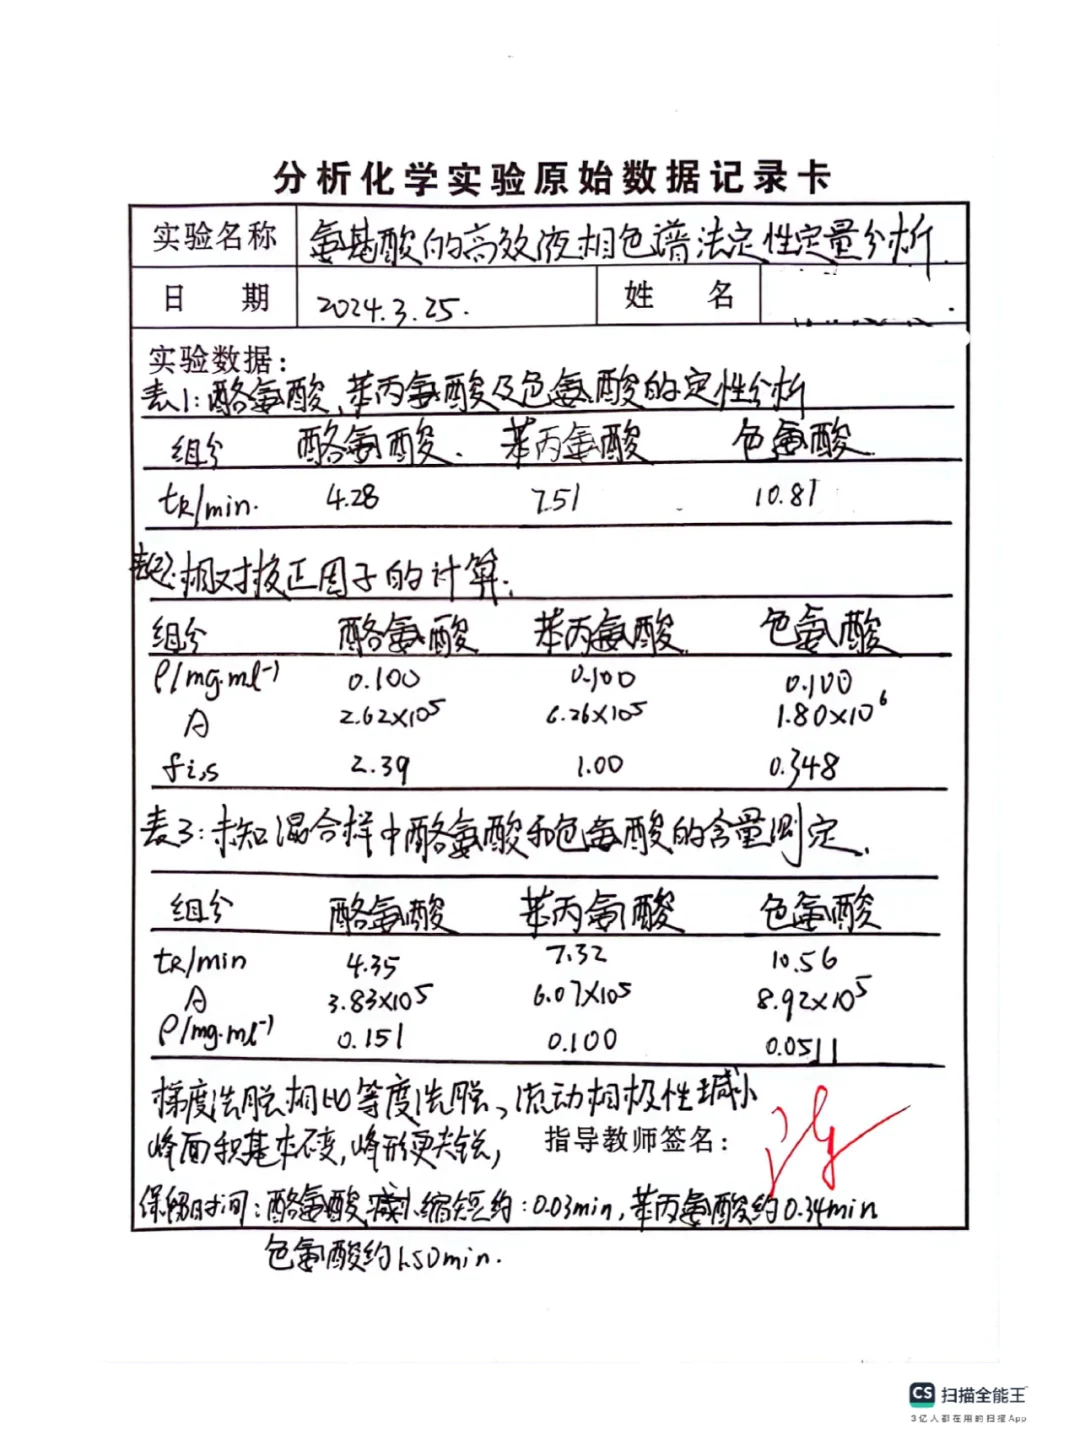 分析化学实验原始数据记录卡
实验名称 氨基酸的高效液相色谱法定性定量分析
日 期 2024.3.25. 姓 名
实验数据:
表1:酪氨酸、苯丙氨酸及色氨酸的定性分析
组分 酪氨酸. 苯丙氨酸 色氨酸
tR/min. 4.28 7.51 10.81
表2:相对校正因子的计算.
组分 酪氨酸 苯丙氨酸 色氨酸
ρ/mg·ml⁻¹ 0.100 0.100 0.100
A 2.62×10⁵ 6.26×10⁵ 1.80×10⁶
fi,s 2.39 1.00 0.348
表3:未知混合样中酪氨酸和色氨酸的含量测定.
组分 酪氨酸 苯丙氨酸 色氨酸
tR/min 4.35 7.32 10.56
A 3.83×10⁵ 6.07×10⁵ 8.92×10⁵
ρ/mg·ml⁻¹ 0.151 0.100 0.0511
梯度洗脱相比等度洗脱、流动相极性减小
峰面积基本不变,峰形更尖锐,
指导教师签名:
保留时间:酪氨酸 缩短约:0.03min,苯丙氨酸约0.34min
色氨酸约1.50min.
CS 扫描全能王
3亿人都在用的扫描App